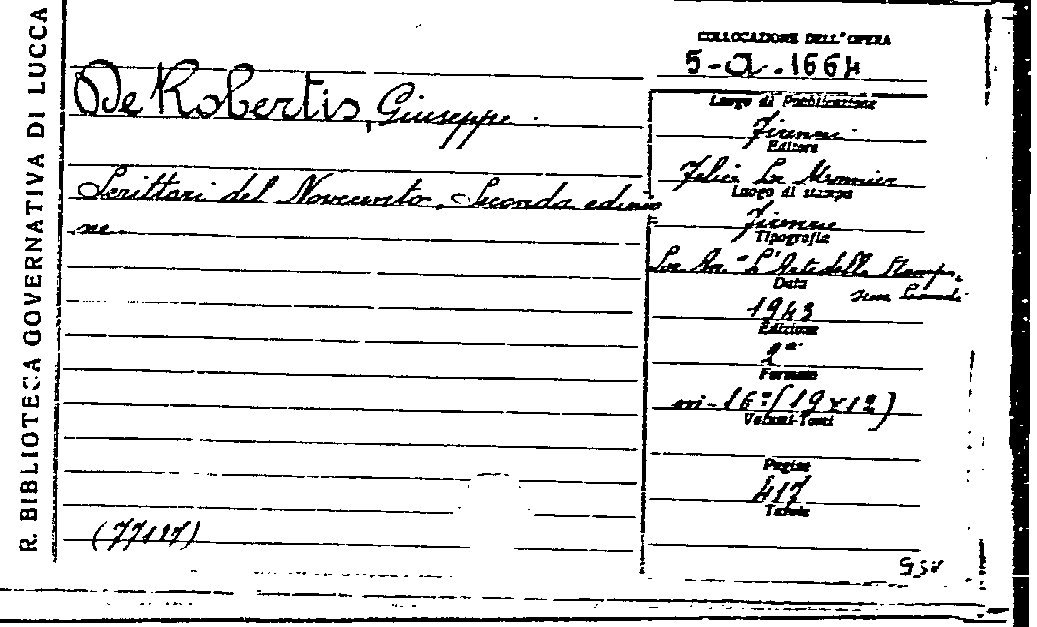 R. BIBLIOTECA GOVERNATIVA DI LUCCA
De Robertis, Giuseppe.
Scrittori del Novecento. Seconda edizio
ne.
(77127)
COLLOCAZIONE DELL'OPERA
5-a.1664
Luogo di Pubblicazione
Firenze
Editore
Felice Le Monnier
Luogo di stampa
Firenze
Tipografia
Soc. An. "L'Arte della Stampa,
Data
1943
Edizione
2ª
Formato
in-16º(19x12)
Volumi-Tomi
Pagine
417
Tavole